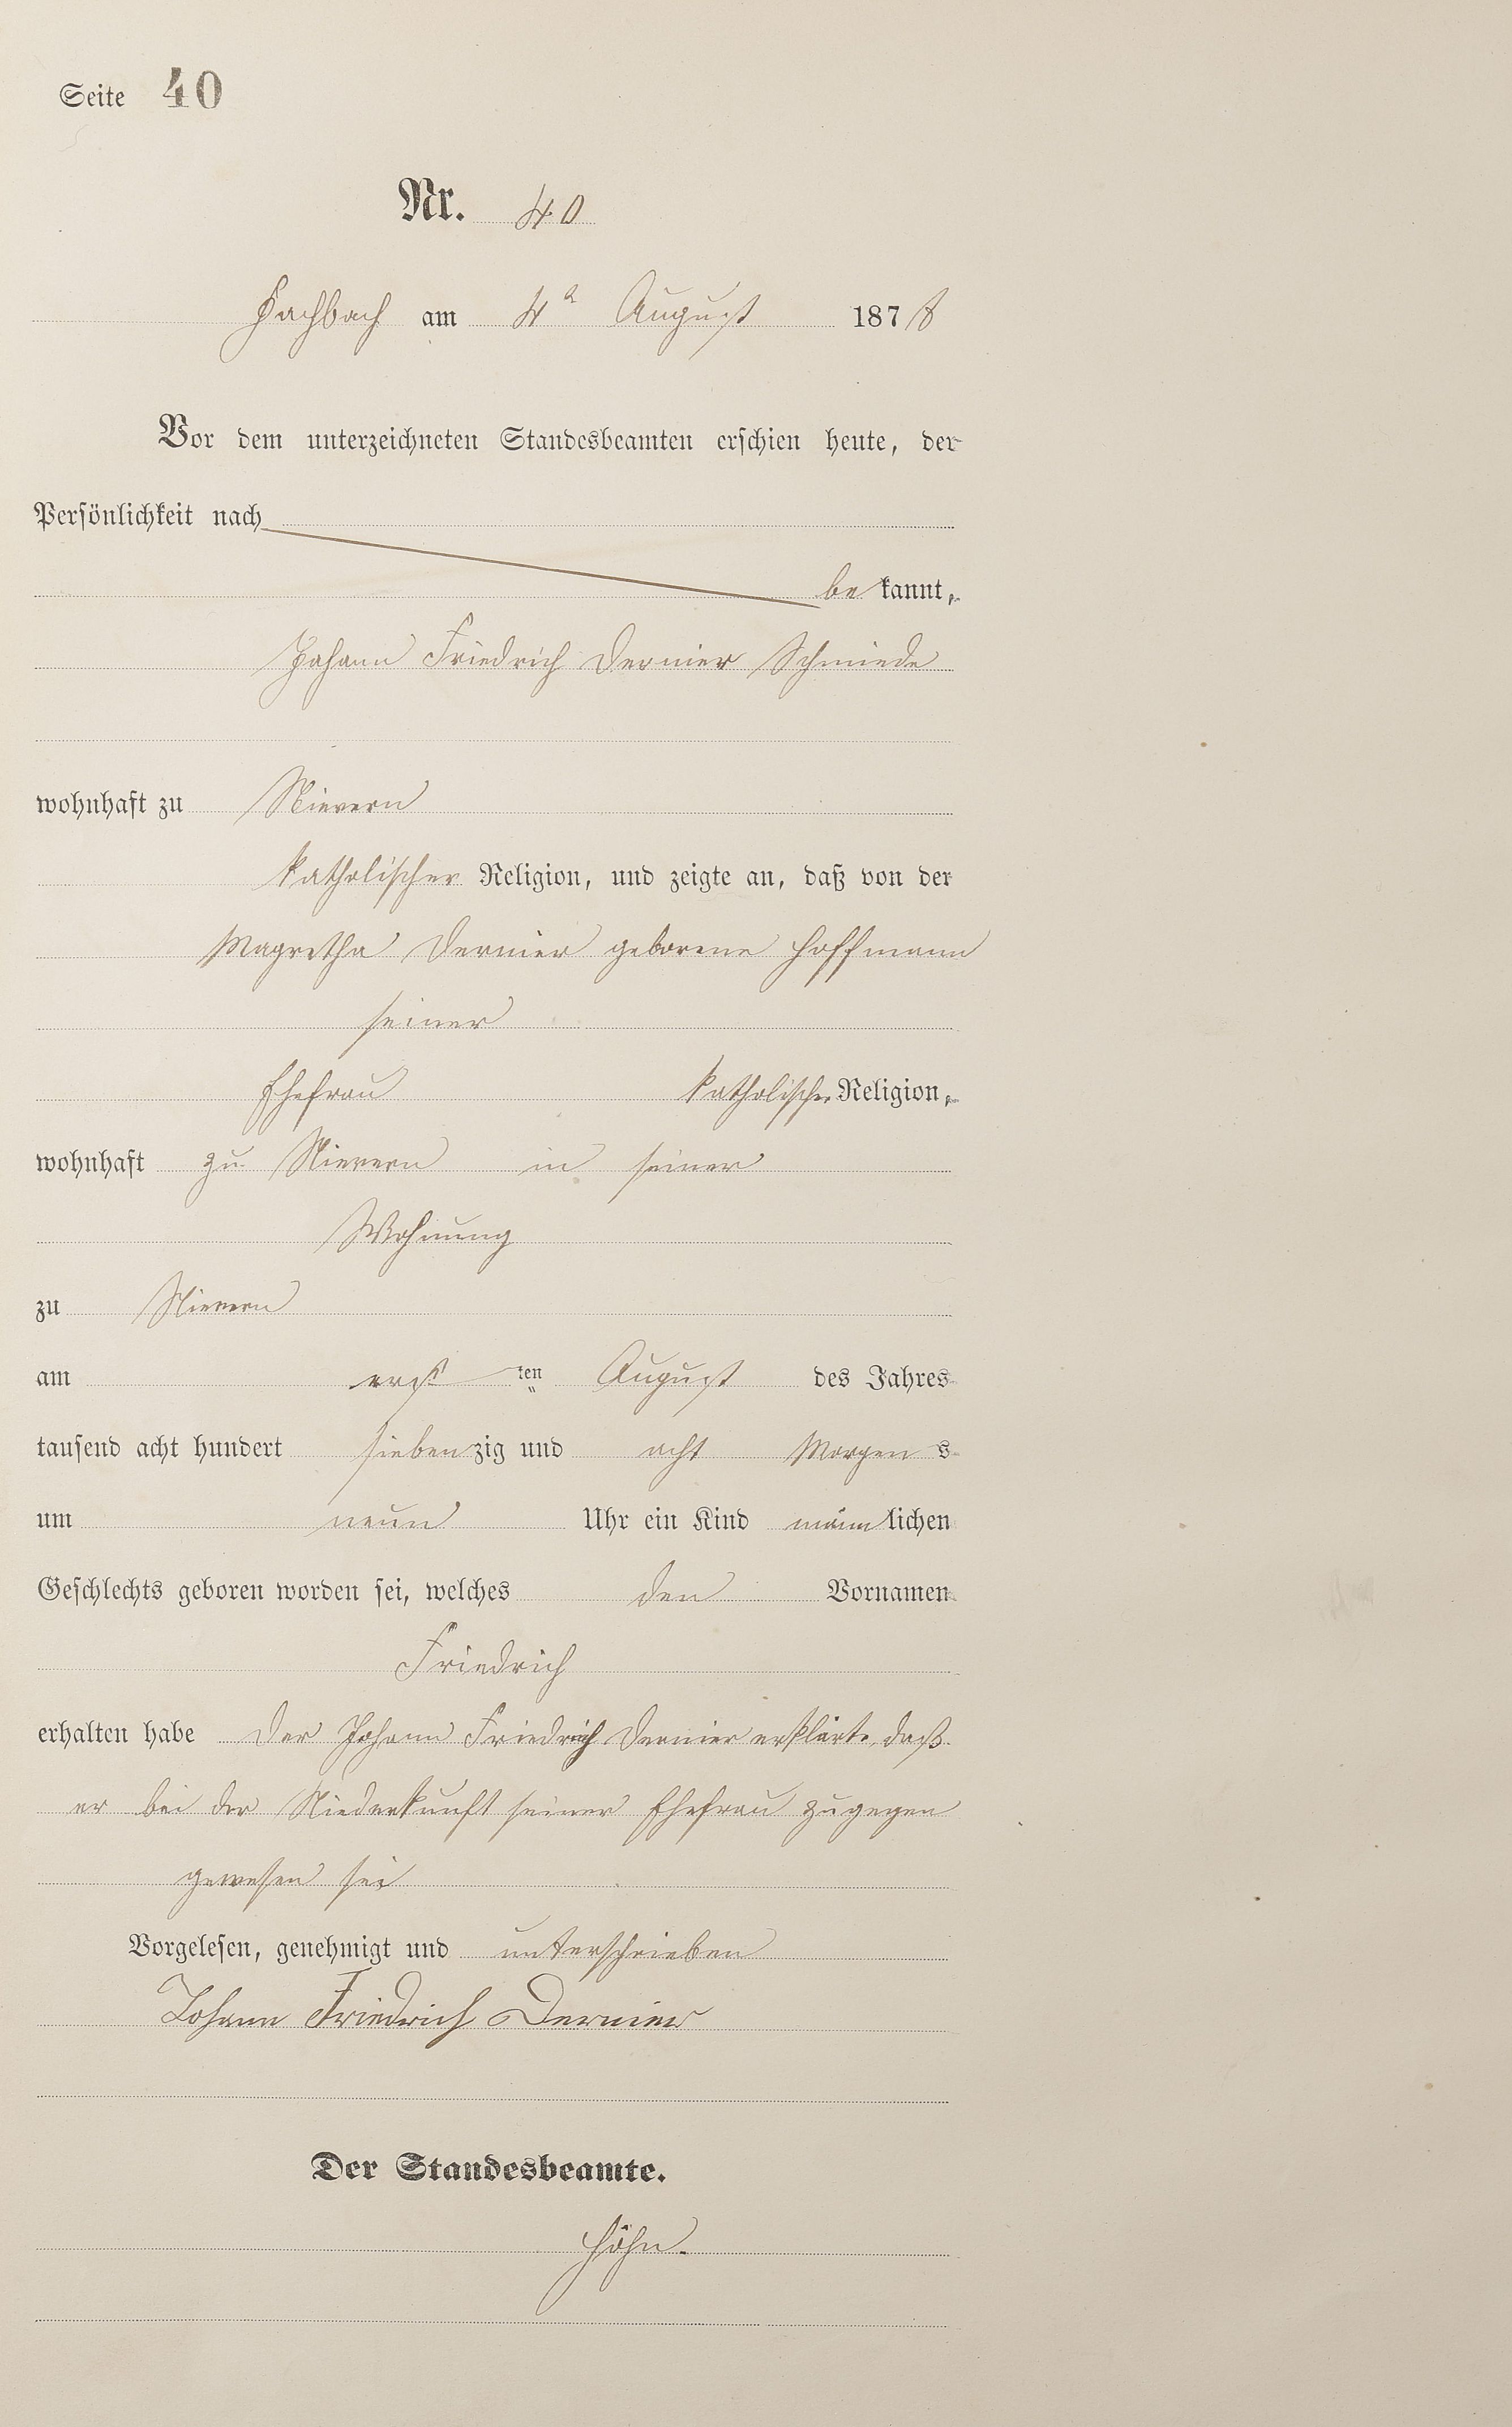 Seite 40
Nr. 40
Fachbach am 4ⁿ August 1878
Vor dem unterzeichneten Standesbeamten erschien heute, der
Persönlichkeit nach
bekannt,
Johann Friedrich Dernier Schmiede
wohnhaft zu Nievern
katholischer Religion, und zeigte an, daß von der
Magretha Dernier geborene Hoffmann
seiner
Ehefrau katholischer Religion,
wohnhaft zu Nievern in seiner
Wohnung
zu Nievern
am ersten August des Jahres
tausend acht hundert siebenzig und acht Morgens
um neun Uhr ein Kind männlichen
Geschlechts geboren worden sei, welches den Vornamen
Friedrich
erhalten habe Der Johann Friedrich Dernier erklärte, daß
er bei der Niederkunft seiner Ehefrau zugegen
gewesen sei
Vorgelesen, genehmigt und unterschrieben
Johann Friedrich Dernier
Der Standesbeamte.
Höhn.